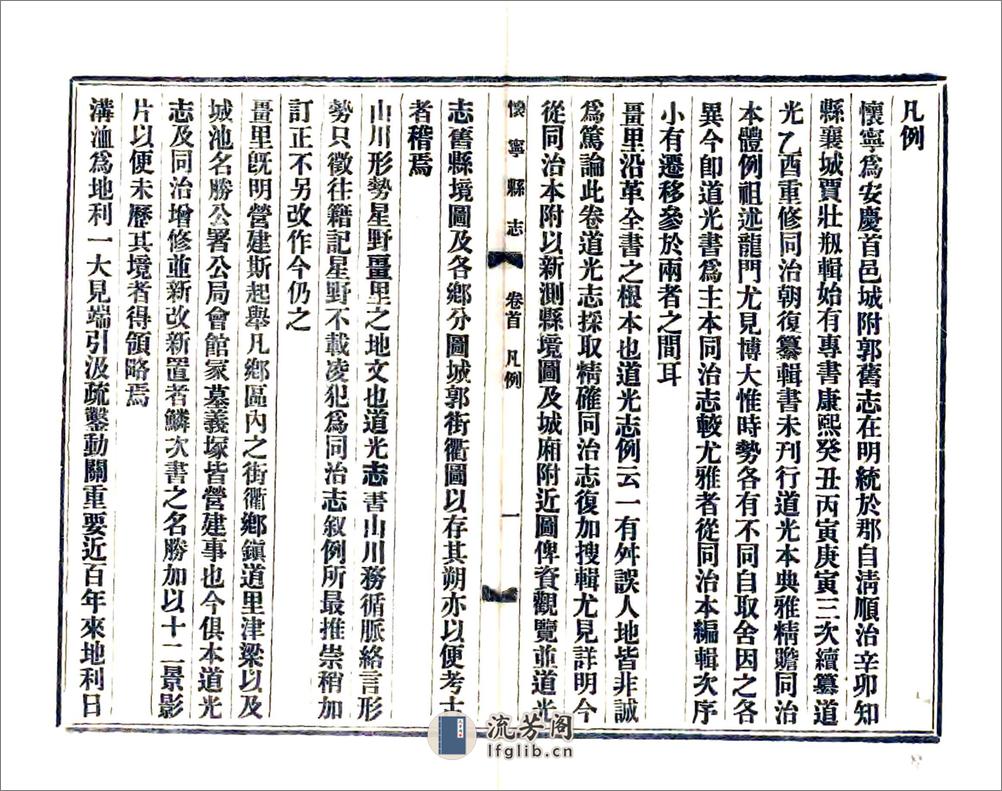 凡例
懷寧爲安慶首邑城附郭舊志在明統於郡自淸順治辛卯知
縣襄城賈壯瓶輯始有專書康熙癸丑丙寅庚寅三次續纂道
光乙酉重修同治朝復纂輯書未刊行道光本典雅精贍同治
本體例祖述龍門尤見博大惟時勢各有不同自取舍因之各
異今卽道光書爲主本同治志較尤雅者從同治本編輯次序
小有遷移參於兩者之間耳
畺里沿革全書之根本也道光志例云一有舛誤人地皆非誠
爲篤論此卷道光志採取精確同治志復加搜輯尤見詳明今
從同治本附以新測縣境圖及城廂附近圖俾資觀覽並道光
懷寧縣志 卷首 凡例 一
志舊縣境圖及各鄉分圖城郭街衢圖以存其朔亦以便考古
者稽焉
山川形勢星野畺里之地文也道光志書山川務循脈絡言形
勢只徵往籍記星野不載凌犯爲同治志叙例所最推崇稍加
訂正不另改作今仍之
畺里旣明營建斯起舉凡鄉區內之街衢鄉鎮道里津梁以及
城池名勝公署公局會館冢墓義塚皆營建事也今俱本道光
志及同治增修並新改新置者鱗次書之名勝加以十二景影
片以便未歷其境者得領略焉
溝洫爲地利一大見端引汲疏鑿動關重要近百年來地利日
流芳阁
lfglib.cn